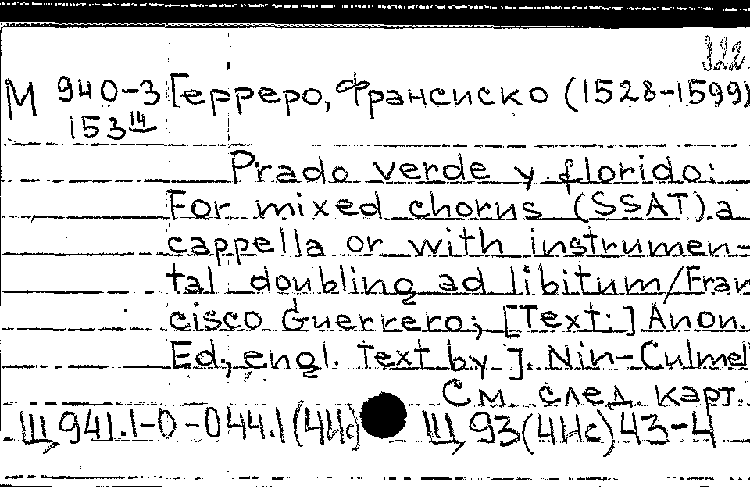 322
М 940-3 Герреро, Франсиско (1528-1599)
153 14
Prado verde y florido:
For mixed chorus (SSAT) a
cappella or with instrumen-
tal doubling ad libitum/Fran
cisco Guerrero; [Text:] Anon.
Ed., engl. Text by J. Nin-Culmel
См. след. карт.
Щ 941.1-0-044.1(4Ис) Щ 93(4Ис)43-4